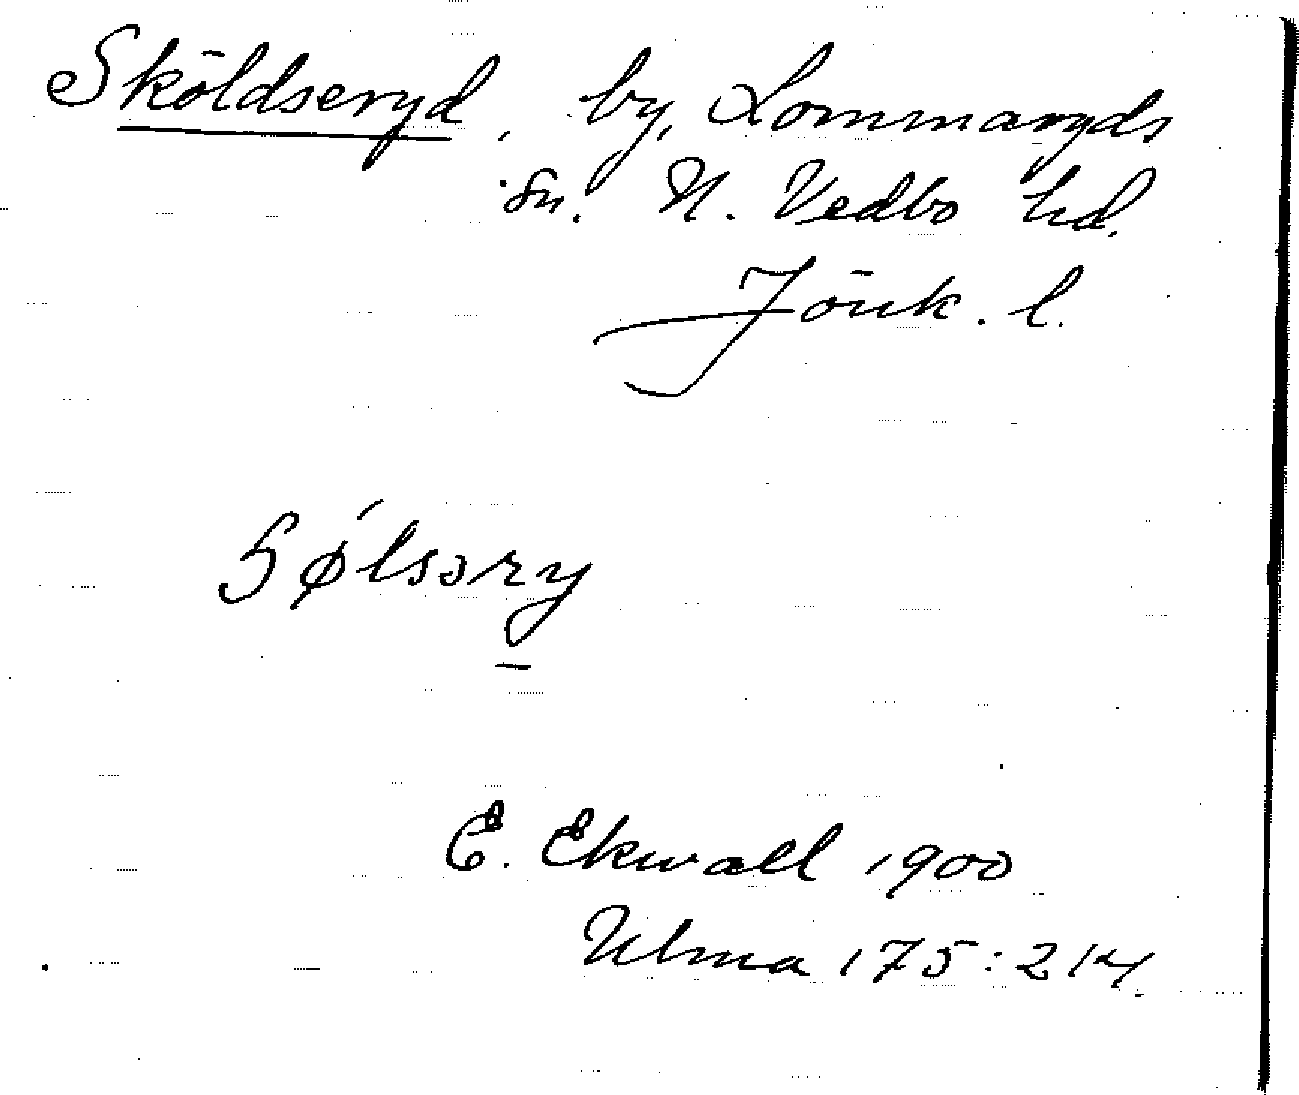 Sköldseryd, by, Lommaryds
sn. N. Vedbo hd.
Jönk. l.
Sǿlsəry
E. Ekwall 1900
Ulma 175:214